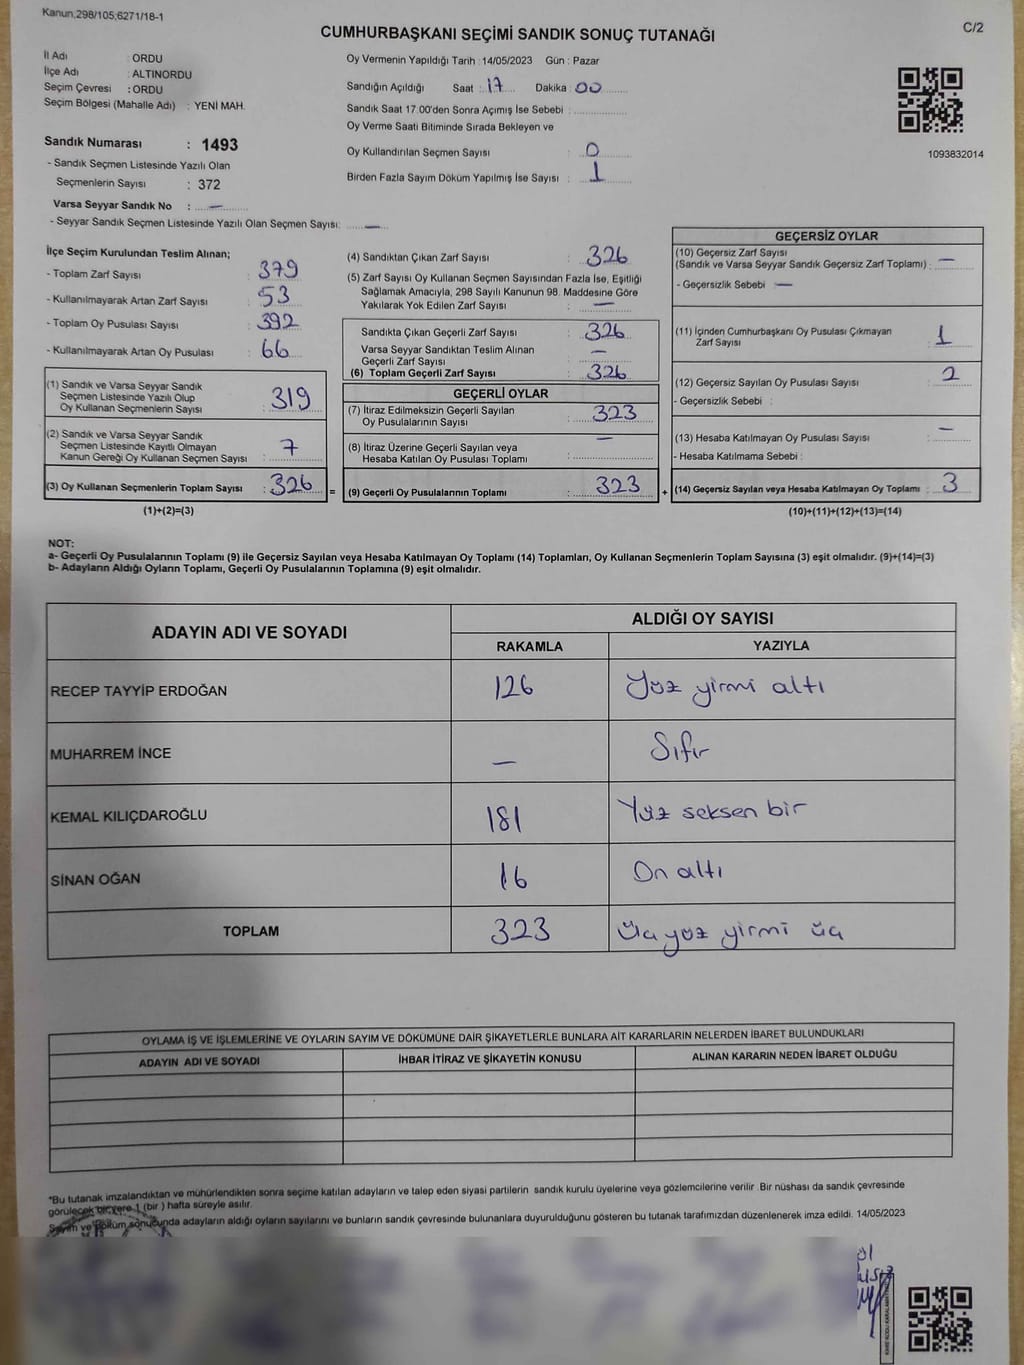 Kanun,298/105;6271/18-1
C/2
CUMHURBAŞKANI SEÇİMİ SANDIK SONUÇ TUTANAĞI
İl Adı : ORDU
İlçe Adı : ALTINORDU
Seçim Çevresi : ORDU
Seçim Bölgesi (Mahalle Adı) : YENİ MAH.
Sandık Numarası : 1493
- Sandık Seçmen Listesinde Yazılı Olan
Seçmenlerin Sayısı : 372
Varsa Seyyar Sandık No : —
- Seyyar Sandık Seçmen Listesinde Yazılı Olan Seçmen Sayısı: —
Oy Vermenin Yapıldığı Tarih : 14/05/2023 Gün : Pazar
Sandığın Açıldığı Saat : 17 Dakika : 00
Sandık Saat 17:00'den Sonra Açımış İse Sebebi :
Oy Verme Saati Bitiminde Sırada Bekleyen ve
Oy Kullandırılan Seçmen Sayısı : 0
Birden Fazla Sayım Döküm Yapılmış İse Sayısı : 1
1093832014
İlçe Seçim Kurulundan Teslim Alınan;
- Toplam Zarf Sayısı : 379
- Kullanılmayarak Artan Zarf Sayısı : 53
- Toplam Oy Pusulası Sayısı : 392
- Kullanılmayarak Artan Oy Pusulası : 66
(1) Sandık ve Varsa Seyyar Sandık
Seçmen Listesinde Yazılı Olup
Oy Kullanan Seçmenlerin Sayısı : 319
(2) Sandık ve Varsa Seyyar Sandık
Seçmen Listesinde Kayıtlı Olmayan
Kanun Gereği Oy Kullanan Seçmen Sayısı : 7
(3) Oy Kullanan Seçmenlerin Toplam Sayısı : 326 =
(1)+(2)=(3)
(4) Sandıktan Çıkan Zarf Sayısı : 326
(5) Zarf Sayısı Oy Kullanan Seçmen Sayısından Fazla İse, Eşitliği
Sağlamak Amacıyla, 298 Sayılı Kanunun 98. Maddesine Göre
Yakılarak Yok Edilen Zarf Sayısı : —
Sandıkta Çıkan Geçerli Zarf Sayısı : 326
Varsa Seyyar Sandıktan Teslim Alınan
Geçerli Zarf Sayısı : —
(6) Toplam Geçerli Zarf Sayısı : 326
GEÇERLİ OYLAR
(7) İtiraz Edilmeksizin Geçerli Sayılan
Oy Pusulalarının Sayısı : 323
(8) İtiraz Üzerine Geçerli Sayılan veya
Hesaba Katılan Oy Pusulası Toplamı : —
(9) Geçerli Oy Pusulalarının Toplamı : 323 +
GEÇERSİZ OYLAR
(10) Geçersiz Zarf Sayısı
(Sandık ve Varsa Seyyar Sandık Geçersiz Zarf Toplamı) : —
- Geçersizlik Sebebi : —
(11) İçinden Cumhurbaşkanı Oy Pusulası Çıkmayan
Zarf Sayısı : 1
(12) Geçersiz Sayılan Oy Pusulası Sayısı : 2
- Geçersizlik Sebebi :
(13) Hesaba Katılmayan Oy Pusulası Sayısı : —
- Hesaba Katılmama Sebebi :
(14) Geçersiz Sayılan veya Hesaba Katılmayan Oy Toplamı : 3
(10)+(11)+(12)+(13)=(14)
NOT:
a- Geçerli Oy Pusulalarının Toplamı (9) ile Geçersiz Sayılan veya Hesaba Katılmayan Oy Toplamı (14) Toplamları, Oy Kullanan Seçmenlerin Toplam Sayısına (3) eşit olmalıdır. (9)+(14)=(3)
b- Adayların Aldığı Oyların Toplamı, Geçerli Oy Pusulalarının Toplamına (9) eşit olmalıdır.
ADAYIN ADI VE SOYADI
ALDIĞI OY SAYISI
RAKAMLA YAZIYLA
RECEP TAYYİP ERDOĞAN 126 Yüz yirmi altı
MUHARREM İNCE — Sıfır
KEMAL KILIÇDAROĞLU 181 Yüz seksen bir
SİNAN OĞAN 16 On altı
TOPLAM 323 Üç yüz yirmi üç
OYLAMA İŞ VE İŞLEMLERİNE VE OYLARIN SAYIM VE DÖKÜMÜNE DAİR ŞİKAYETLERLE BUNLARA AİT KARARLARIN NELERDEN İBARET BULUNDUKLARI
ADAYIN ADI VE SOYADI İHBAR İTİRAZ VE ŞİKAYETİN KONUSU ALINAN KARARIN NEDEN İBARET OLDUĞU
*Bu tutanak imzalandıktan ve mühürlendikten sonra seçime katılan adayların ve talep eden siyasi partilerin sandık kurulu üyelerine veya gözlemcilerine verilir. Bir nüshası da sandık çevresinde
görülecek bir yere 1 (bir ) hafta süreyle asılır.
Sayım ve Döküm sonucunda adayların aldığı oyların sayılarını ve bunların sandık çevresinde bulunanlara duyurulduğunu gösteren bu tutanak tarafımızdan düzenlenerek imza edildi. 14/05/2023